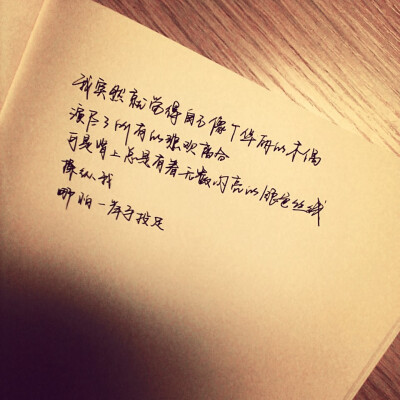 我突然就觉得自己像个华丽的木偶
演尽了所有的悲欢离合
可是背上总是有着无数闪亮的银色丝线
操纵我
哪怕一举手投足